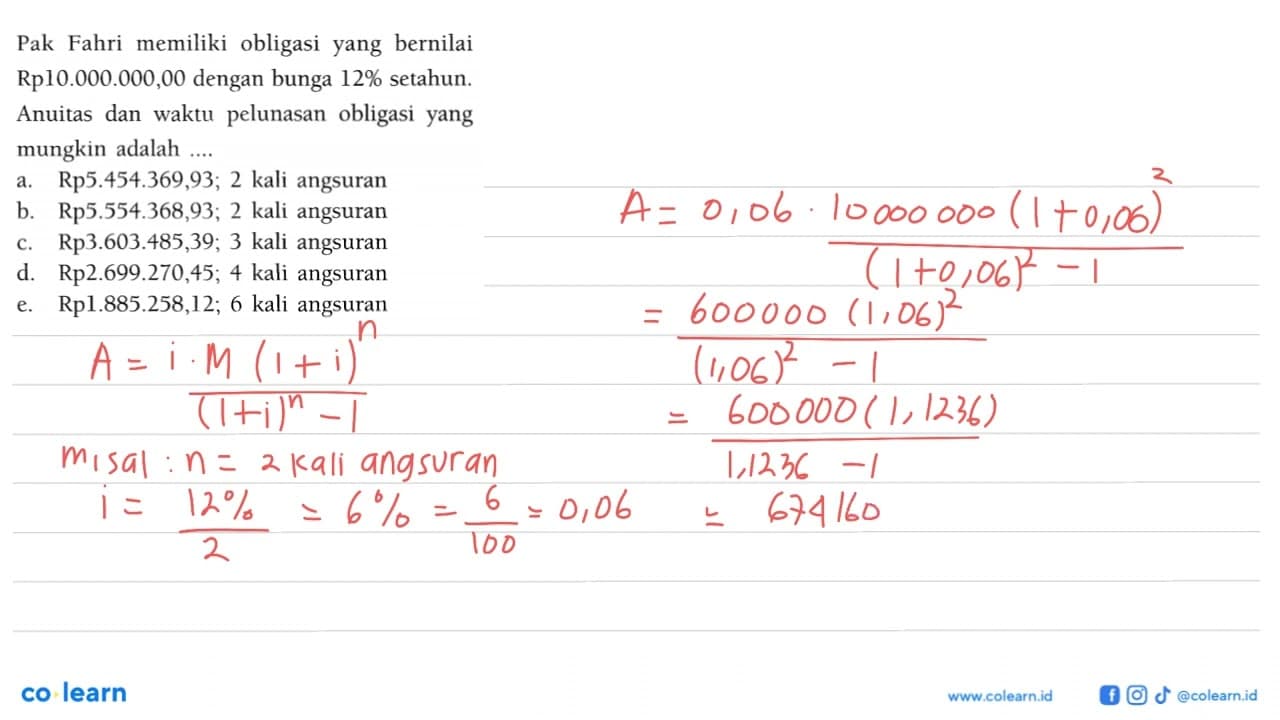 Pak Fahri memiliki obligasi yang bernilai
Rp10.000.000,00 dengan bunga 12% setahun.
Anuitas dan waktu pelunasan obligasi yang
mungkin adalah ....
a. Rp5.454.369,93; 2 kali angsuran
b. Rp5.554.368,93; 2 kali angsuran
c. Rp3.603.485,39; 3 kali angsuran
d. Rp2.699.270,45; 4 kali angsuran
e. Rp1.885.258,12; 6 kali angsuran
A = i · M (1 + i)^n
(1+i)^n - 1
misal : n = 2 kali angsuran
i = 12% = 6% = 6 = 0,06
2 100
A = 0,06 · 10000000 (1+0,06)^2
(1+0,06)^2 - 1
= 600000 (1,06)^2
(1,06)^2 - 1
= 600000 (1,1236)
1,1236 - 1
= 674160
co·learn
www.colearn.id
@colearn.id